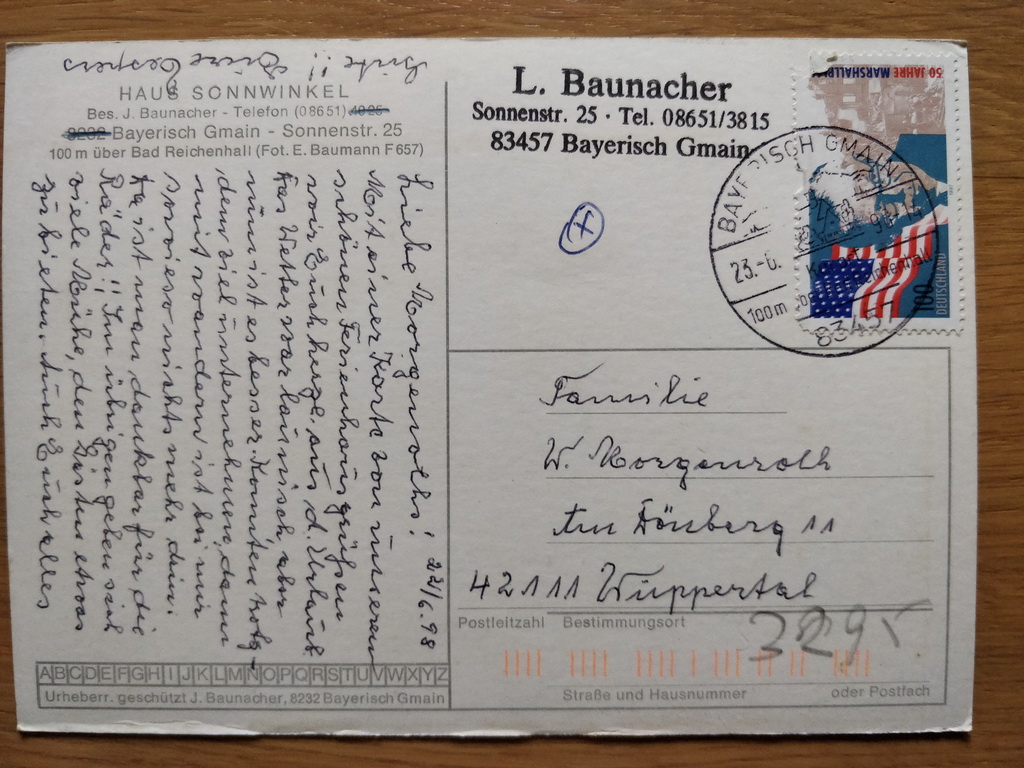 HAUS SONNWINKEL
Bes. J. Baunacher - Telefon (08651) 4025
8232 Bayerisch Gmain - Sonnenstr. 25
100 m über Bad Reichenhall (Fot. E. Baumann F 657)
22/6.98
Liebe Morgenroths!
Mit einer Karte von unserem
schönen Ferienhaus grüßen
wir Euch herzl. aus d. Urlaub.
Das Wetter war launisch, aber
nun ist es besser. Konnten trotz-
dem viel unternehmen, denn
mit wandern ist bei mir
sowieso nichts mehr drin!
Da ist man dankbar für die
Räder!! Im übrigen geben sich
viele Mühe, den Gästen etwas
zu bieten. Auch Euch alles
Gute!! Eure
ABCDEFGHIJKLMNOPQRSTUVWXYZ
Urheberr. geschützt J. Baunacher, 8232 Bayerisch Gmain
L. Baunacher
Sonnenstr. 25 · Tel. 08651/3815
83457 Bayerisch Gmain
50 JAHRE MARSHALLPL
DEUTSCHLAND
100
BAYERISCH GMAIN
23.-6.
100 m
8345
Familie
W. Morgenroth
Am Dönberg 11
42111 Wuppertal
Postleitzahl Bestimmungsort
3295
Straße und Hausnummer oder Postfach